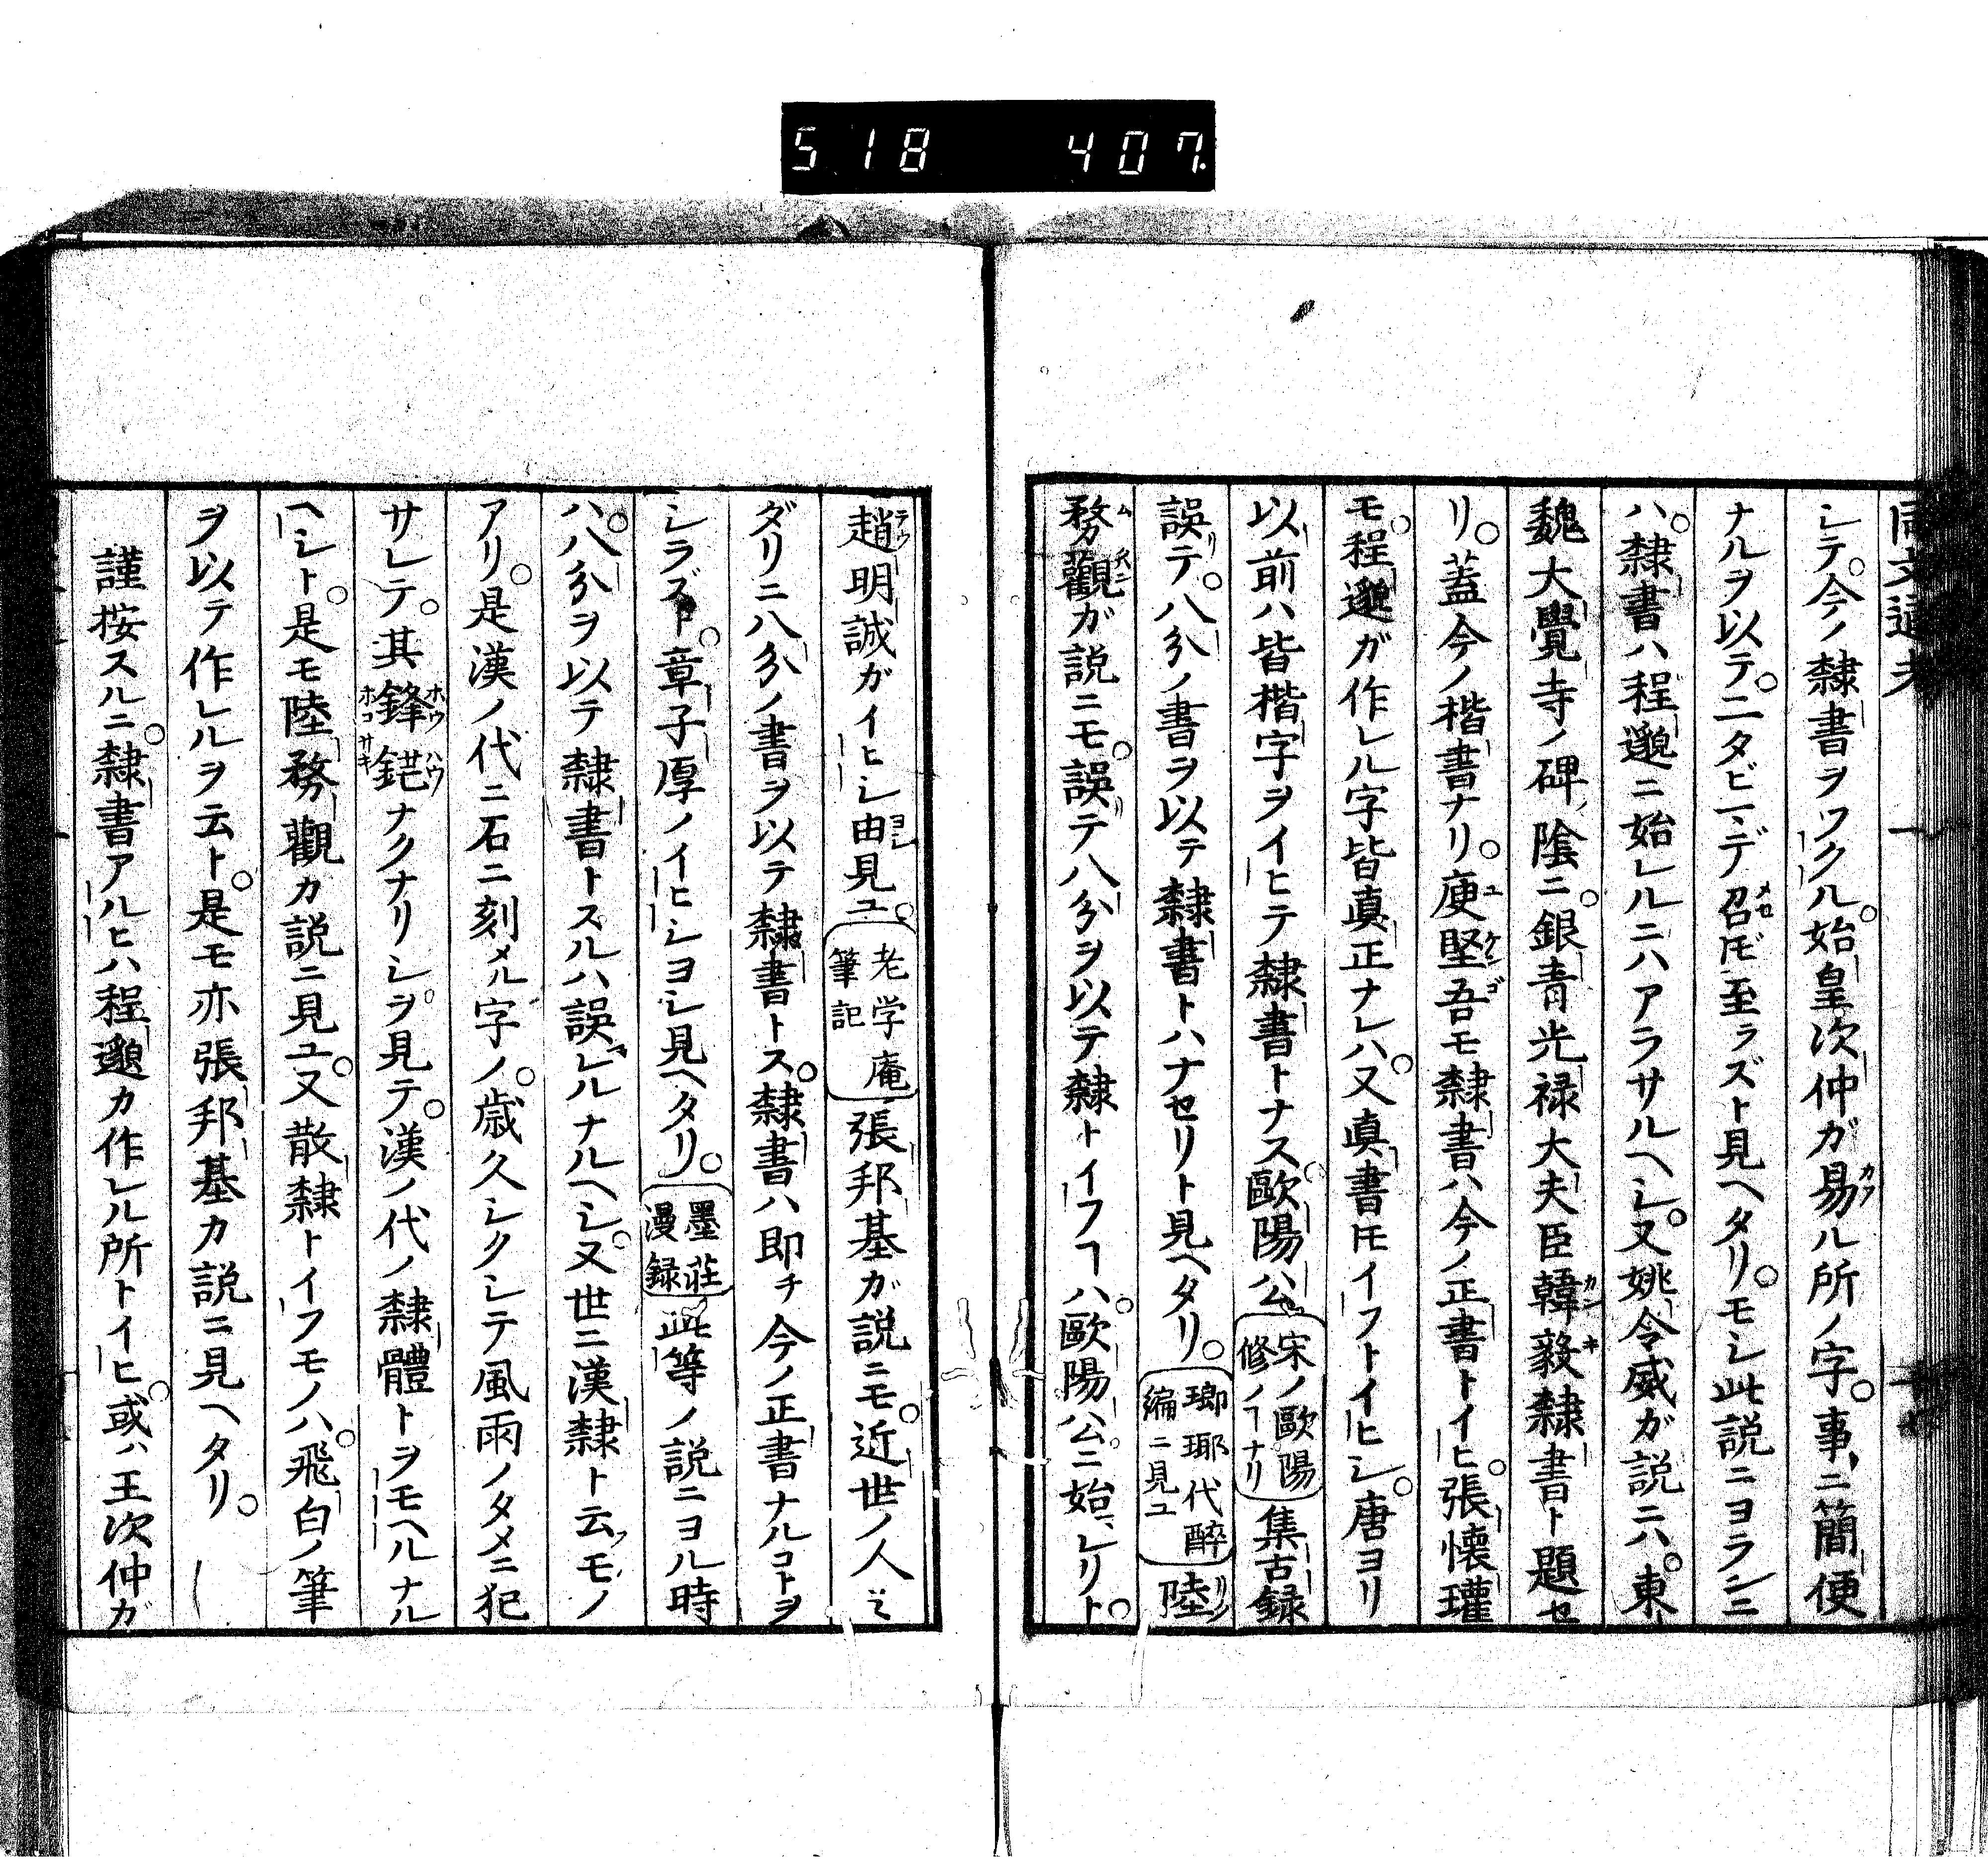 518 407
シテ。今ノ隸書ヲワクル。始皇次仲ガ易ル所ノ字。事ニ簡便
ナルヲ以テ。二タビマデ召セ𪜈至ラズト見ヘタリ。モシ此説ニヨランニ
ハ。隸書ハ程邈ニ始レルニハアラサルヘシ。又姚令威ガ説ニハ。東
魏大覺寺ノ碑陰ニ。銀青光禄大夫臣韓毅隸書ト題セ
リ。蓋今ノ楷書ナリ。庾堅吾モ隸書ハ今ノ正書トイヒ。張懐瓘
モ。程邈ガ作レル字皆真正ナレハ。又真書𪜈イフトイヒシ。唐ヨリ
以前ハ皆楷字ヲイヒテ隸書トナス。歐陽公
宋ノ歐陽
修ノヿナリ
集古録
誤テ。八分ノ書ヲ以テ隸書トハナセリト見ヘタリ。
瑯琊代醉
編ニ見ユ
陸
務觀ガ説ニモ。誤テ八分ヲ以テ隸トイフヿハ。歐陽公ニ始レリト。
趙明誠ガイヒシ由見ユ。
老学庵
筆記
張邦基ガ説ニモ。近世ノ人ミ
ダリニ八分ノ書ヲ以テ隸書トス。隸書ハ即チ今ノ正書ナルコトヲ
シラズト。章子厚ノイヒシヨシ見ヘタリ。
墨荘
漫録
此等ノ説ニヨル時
ハ。八分ヲ以テ隸書トスルハ誤レルナルヘシ。又世ニ漢隸ト云フモノ
アリ。是漢ノ代ニ石ニ刻メル字ノ。歳久シクシテ風雨ノタメニ犯
サレテ。其鋒鋩ナクナリシヲ見テ。漢ノ代ノ隸體トヲモヘルナル
ヘシト。是モ陸務觀カ説ニ見ユ。又散隸トイフモノハ。飛白ノ筆
ヲ以テ作レルヲ云ト。是モ亦張邦基カ説ニ見ヘタリ。
謹按スルニ。隸書アルヒハ程邈カ作レル所トイヒ。或ハ王次仲ガ